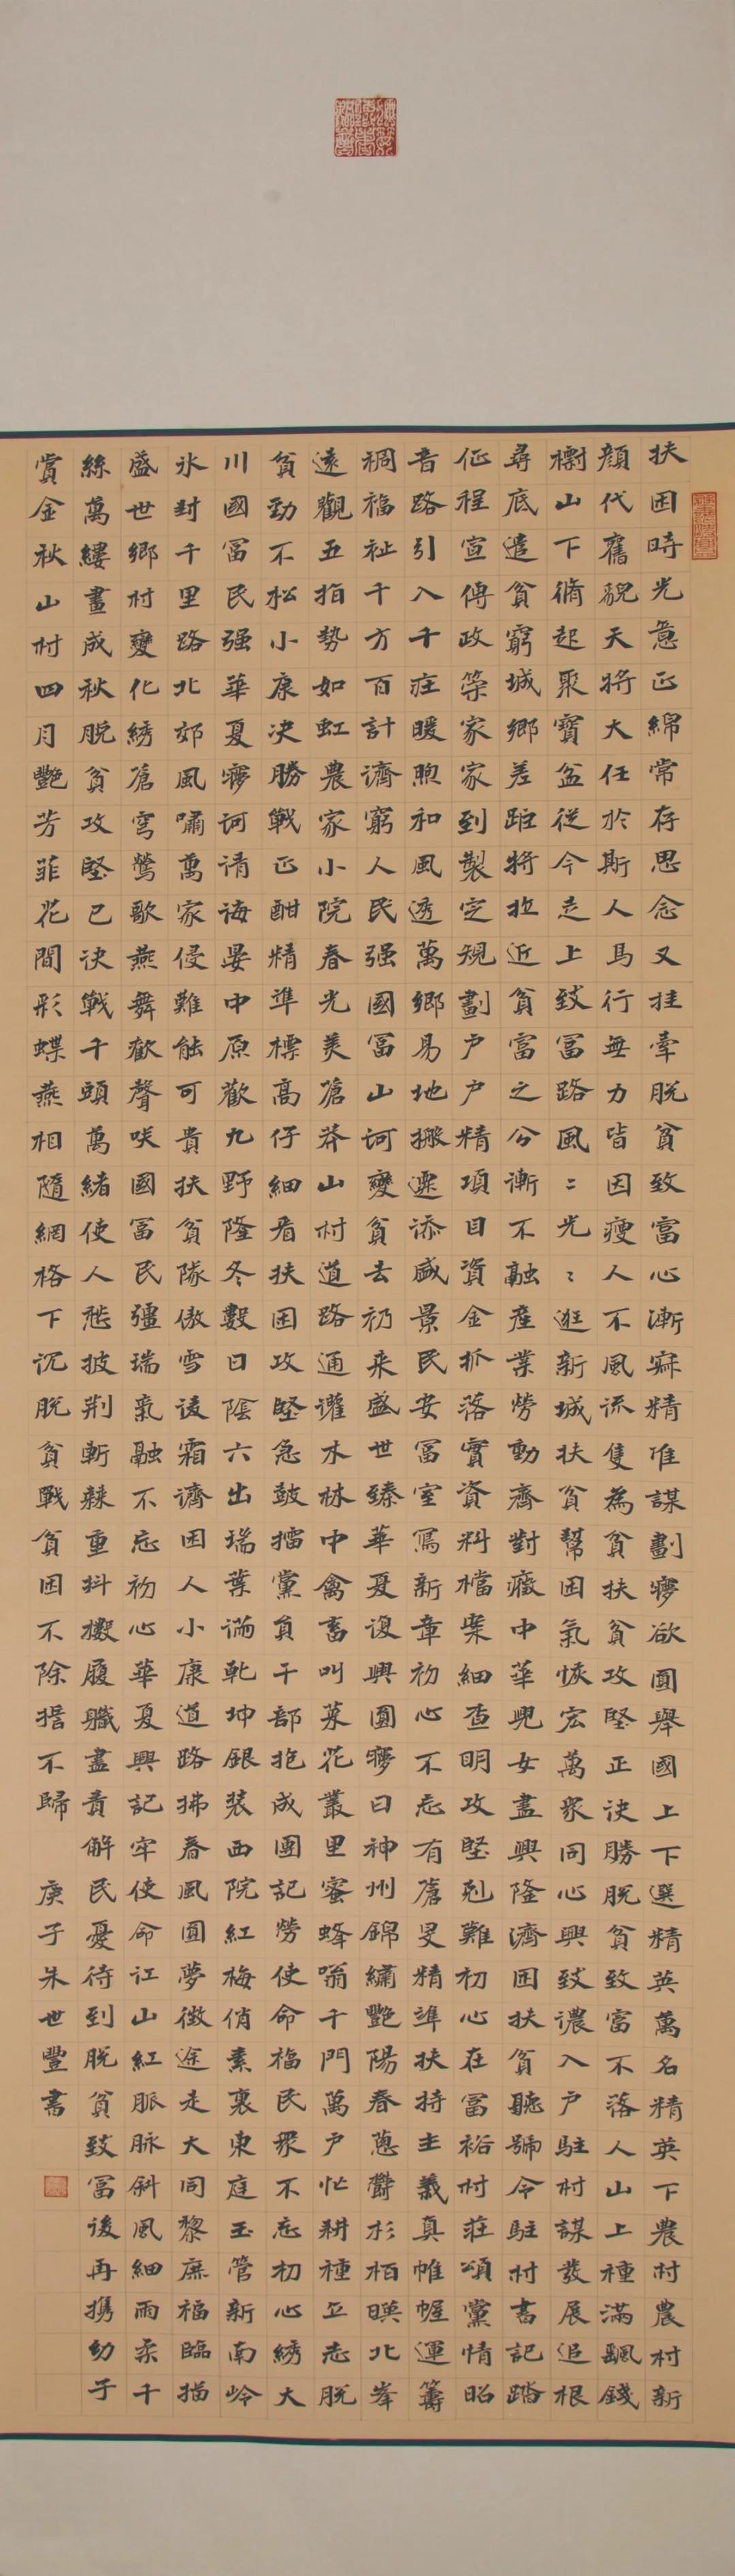 扶困時光意正綿常存思念又挂牽脫貧致富心漸寐精准謀劃夢欲圓舉國上下選精英萬名精英下農村農村新
顏代舊貌天將大任於斯人馬行無力皆因瘦人不風流隻為貧扶貧攻堅正決勝脫貧致富不落人山上種滿飄錢
樹山下脩起聚寶盆從今走上致富路風〻光〻逛新城扶貧幫困氣恢宏萬眾同心興致濃入戶駐村謀發展追根
尋底遣貧窮城鄉差距將拉近貧富之分漸不融產業勞動齊對癥中華兒女盡興隆濟困扶貧聽號令駐村書記踏
征程宣傳政策家家到製定規劃户户精項目資金抓落實資料檔案細查明攻堅剋難初心在富裕村莊頌黨情昭
音路引入千莊暖煦和風透萬鄉易地搬遷添盛景民安富室寫新章初心不忘有蒼旻精準扶持主義真帷幄運籌
禂福祉千方百計濟窮人民强國富山河變貧去礽来盛世臻華夏復興圓夢日神州錦繡艷陽春蔥鬱杉栢暎北峯
遠觀五指勢如虹農家小院春光美蒼莽山村道路通灌木林中禽畜叫菜花叢里蜜蜂嗡千門萬户忙耕種立志脫
貧勁不松小康决勝戰正酣精準標高仔細看扶困攻堅急鼓擂黨員干部抱成團記勞使命福民眾不忘初心綉大
川國富民强華夏夢河清海晏中原歡九野隆冬數日陰六出瑞葉滿乾坤銀装西院紅梅俏素裏東庭玉管新南岭
氷封千里路北郊風嘯萬家侵難能可貴扶貧隊傲雪凌霜濟困人小康道路拂春風圓夢徵途走大同黎庶福臨描
盛世鄉村變化綉蒼穹鶯歌燕舞歡聲咲國富民彊瑞氣融不忘初心華夏興記牢使命江山紅脈脉斜風細雨柔千
絲萬縷畫成秋脫貧攻堅已決戰千頭萬緒使人愁披荆斬棘重抖擻履職盡責解民憂待到脫貧致富後再携幼子
賞金秋山村四月艷芳菲花間彩蝶燕相隨網格下沉脫貧戰貧困不除誓不歸 庚子朱世豐書